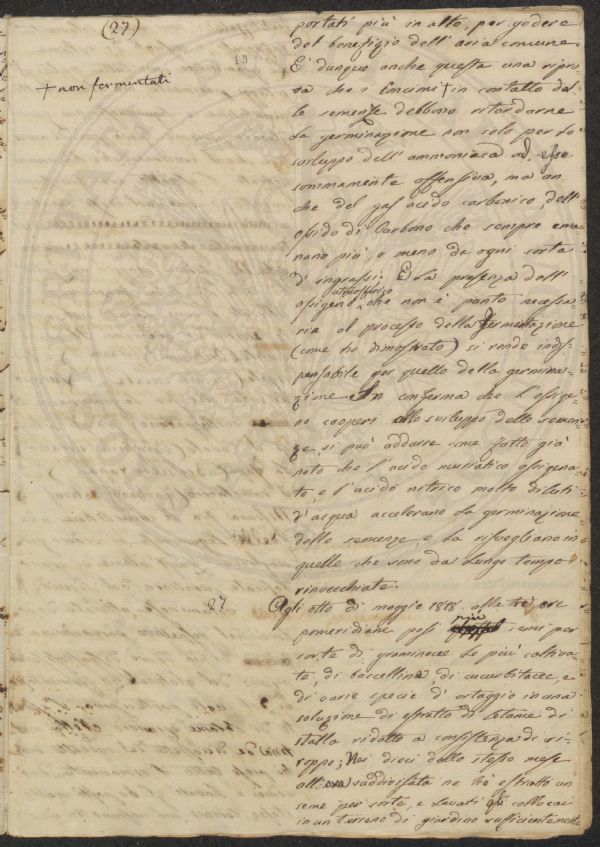 (27)
+ non fermentati
portati più in alto, per godere
del benefizio dell'aria comune.
È dunque anche questa una ripro-
va che i Concimi + in contatto del-
le semenze debbono ritardarne
la germinazione non solo per lo
sviluppo dell'ammoniaca ad esse
sommamente offensiva, ma an
che del gas acido carbonico, dell'
ossido di Carbonio che sempre ema-
nano più, o meno da ogni sorta
d'ingrassi. E la presenza dell'
ossigeno atmosferico che non è punto necessa
ria al processo della fermentazione
(come ho dimostrato) si rende indis-
pensabile per quello della germina-
zione. In conferma che l'ossige-
no cooperi allo sviluppo delle semen
ze, si può addurre come fatto già
noto che l'acido muriatico ossigena-
to, e l'acido nitrico molto diluti
d'acqua accelerano la germinazione
delle semenze, e la risvegliano in
quelle che sono da lungo tempo
rinvecchiate.
27 Agli otto di maggio 1818. alle tre ore
pomeridiane posi più semi per
sorte di graminacee le più coltiva-
te, di baccelline, di cucurbitacee, e
di varie specie d'ortaggio in una
soluzione di estratto di letame di
stalla ridotto a consistenza di si-
roppo; Nei dieci dello stesso mese
all'ora suddivisata ne hò estratto un
seme per sorte, e lavati gli collocai
in un terreno di giardino sufficientemente